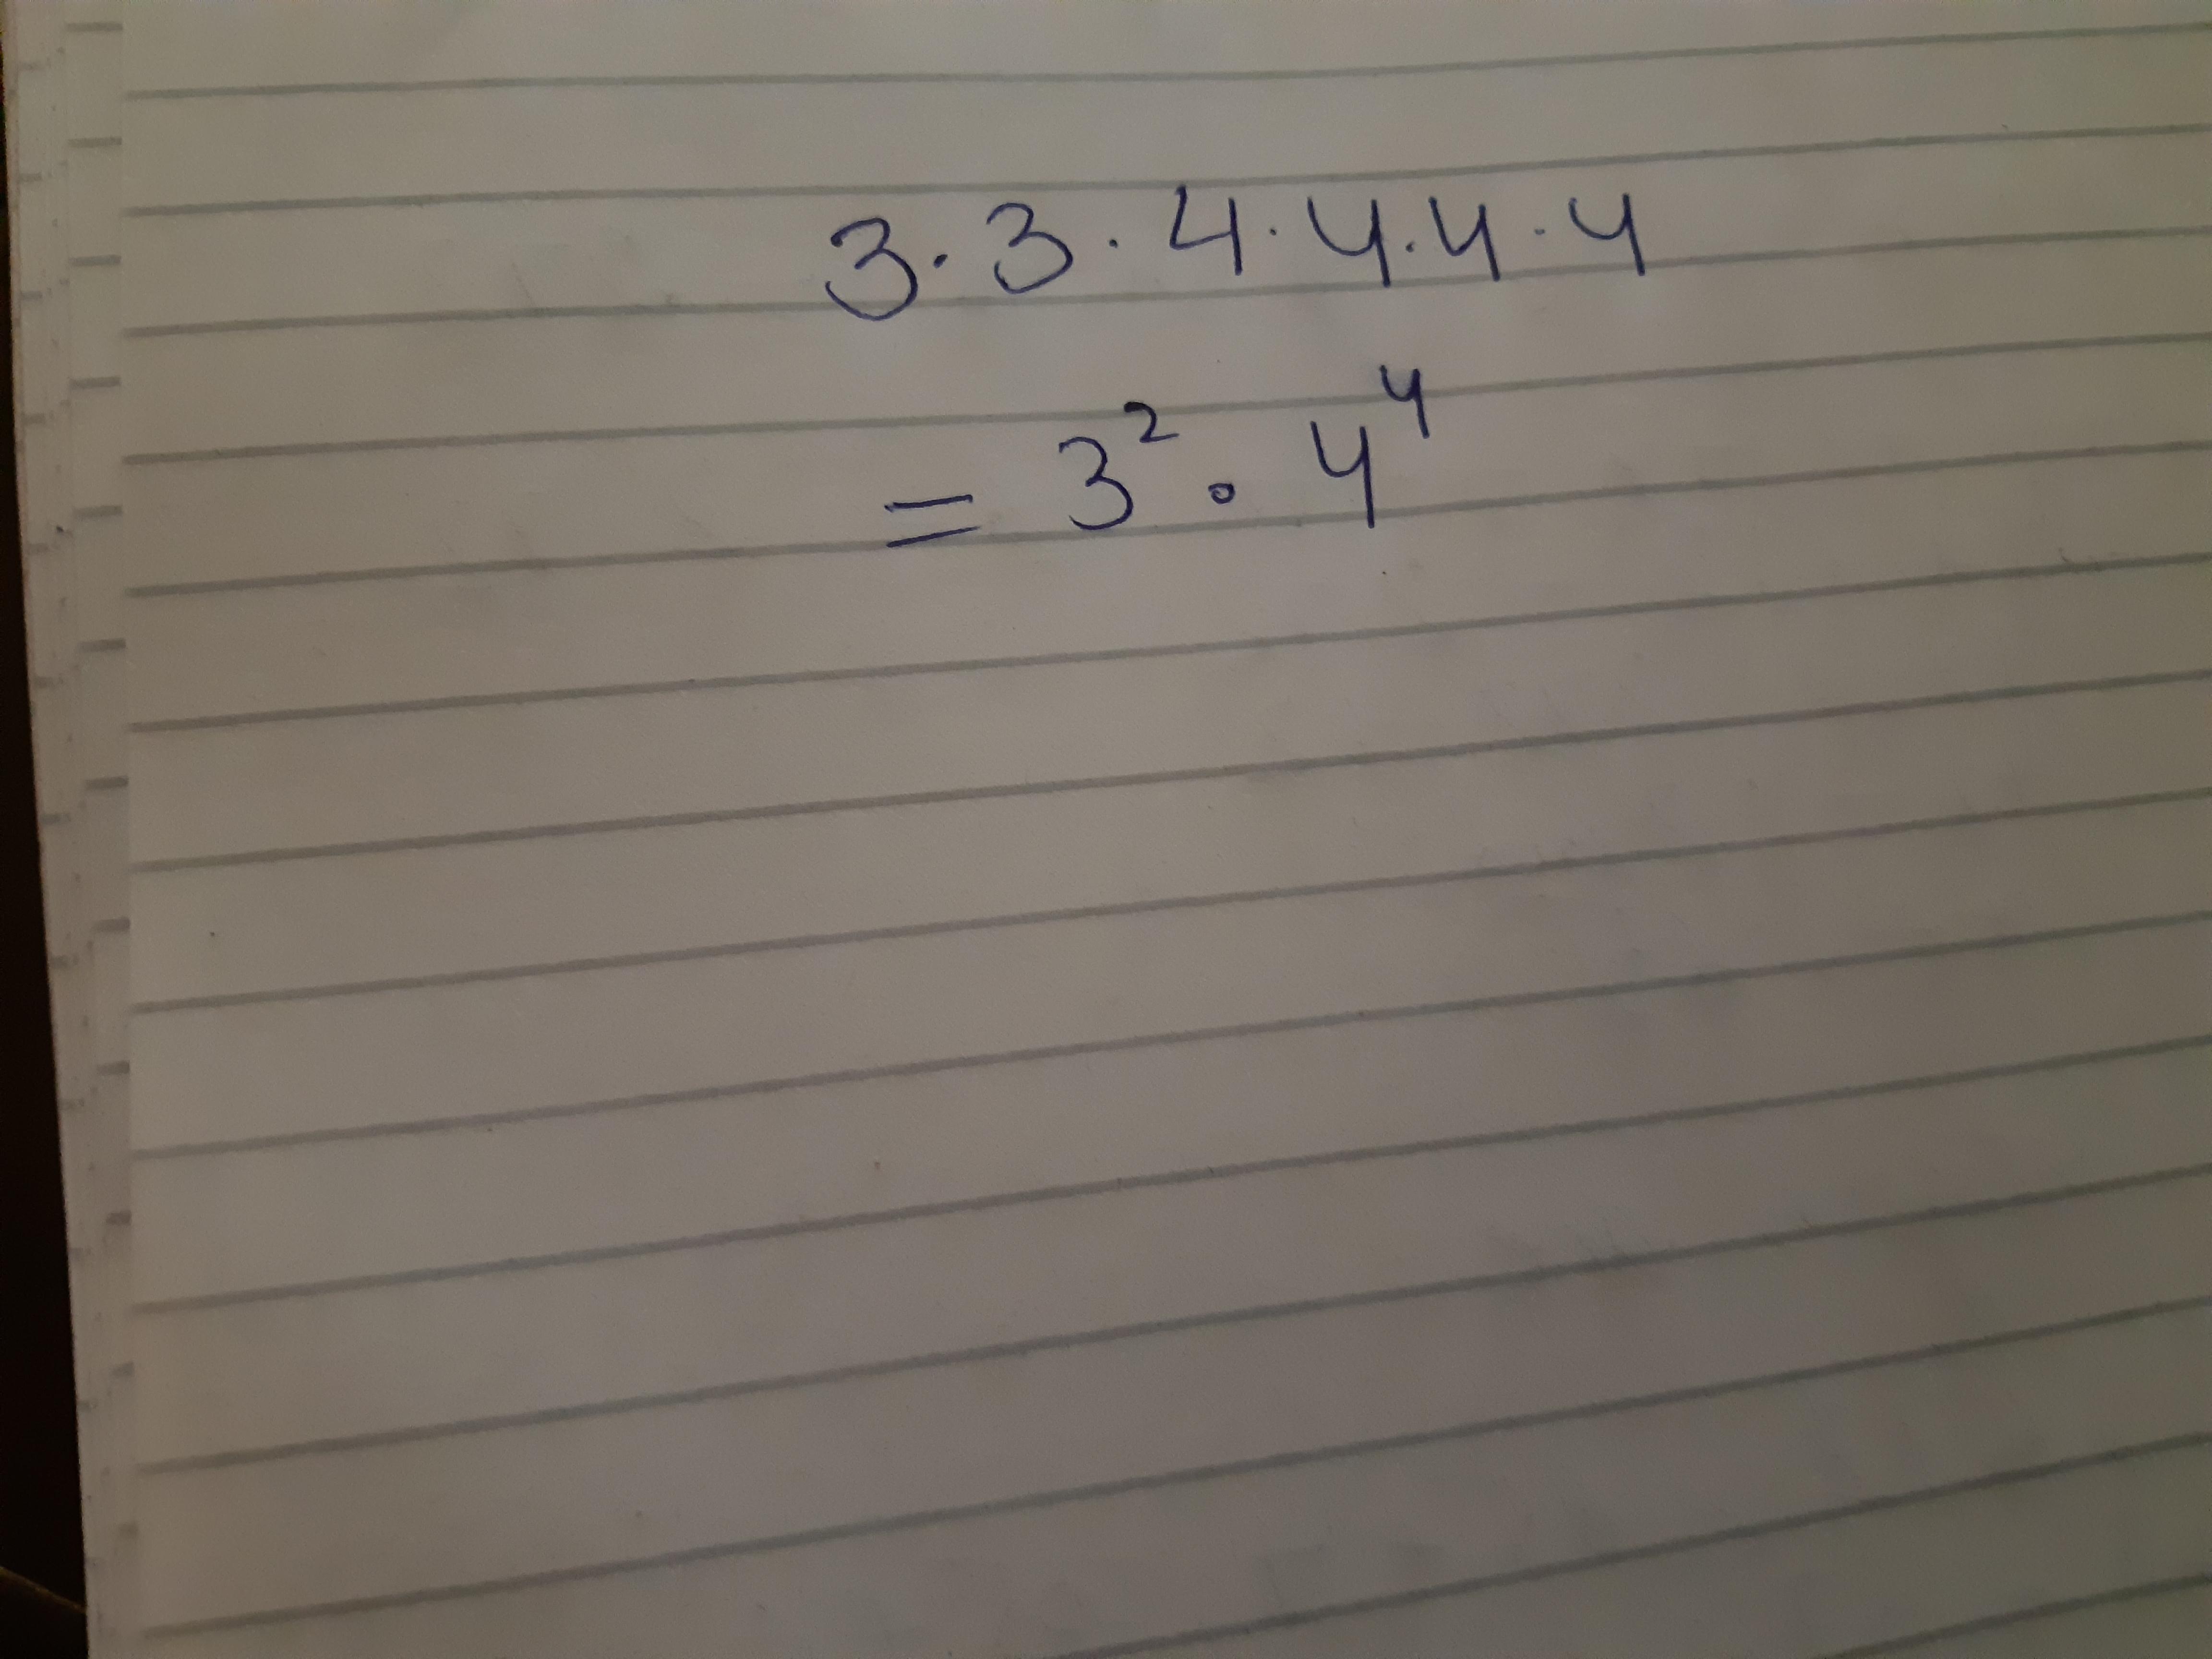 3·3·4·4·4·4
= 3²·4⁴